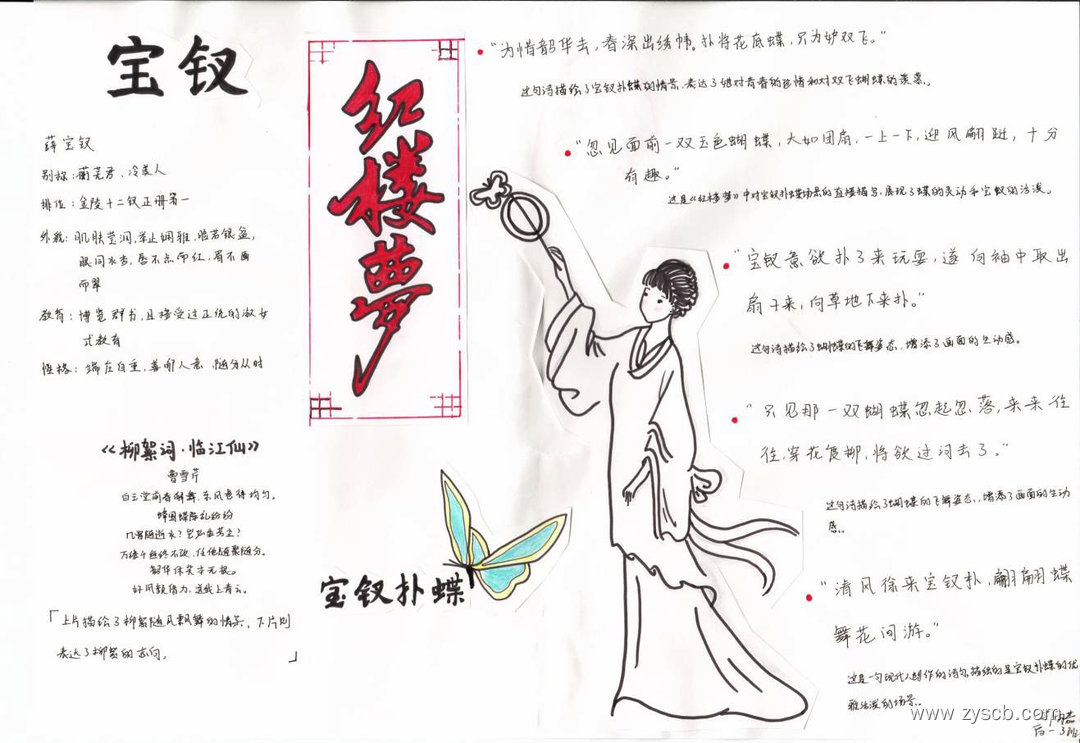 宝钗
薛宝钗
别称：蘅芜君、冷美人
排位：金陵十二钗正册第一
外貌：肌肤莹润，举止娴雅，脸若银盆，
眼同水杏，唇不点而红，眉不画
而翠
教育：博览群书，且接受过正统的淑女
式教育
性格：端庄自重，善听人意，随分从时
《柳絮词·临江仙》
曹雪芹
白玉堂前春解舞，东风卷得均匀。
蜂围蝶阵乱纷纷
几曾随逝水？岂必委芳尘？
万缕千丝终不改，任他随聚随分。
韶华休笑本无根。
好风频借力，送我上青云。
「上片描绘了柳絮随风飘舞的情景，下片则
表达了柳絮的志向。」
红楼梦
宝钗扑蝶
“为惜韶华去，春深出绣帏。扑将花底蝶，只为妒双飞。”
这句诗描绘了宝钗扑蝶的情景，表达了她对青春的 和对双飞蝴蝶的羡慕。
“忽见面前一双玉色蝴蝶，大如团扇，一上一下，迎风翩跹，十分
有趣。”
这是《红楼梦》中对宝钗扑蝶场景的直接描写，展现了蝶的灵动和宝钗的活泼。
“宝钗意欲扑了来玩耍，遂向袖中取出
扇子来，向草地下来扑。”
这句诗描绘了蝴蝶的飞舞姿态，增添了画面的生动感。
“只见那一双蝴蝶忽起忽落，来来往
往，穿花度柳，将欲过河去了。”
这句诗描绘了蝴蝶的飞舞姿态，增添了画面的生动
感。
“清风徐来宝钗扑，翩翩蝶
舞花间游。”
这是一句现代人创作的诗句，描绘的是宝钗扑蝶的优
雅活泼的场景。
www.zyscb.com